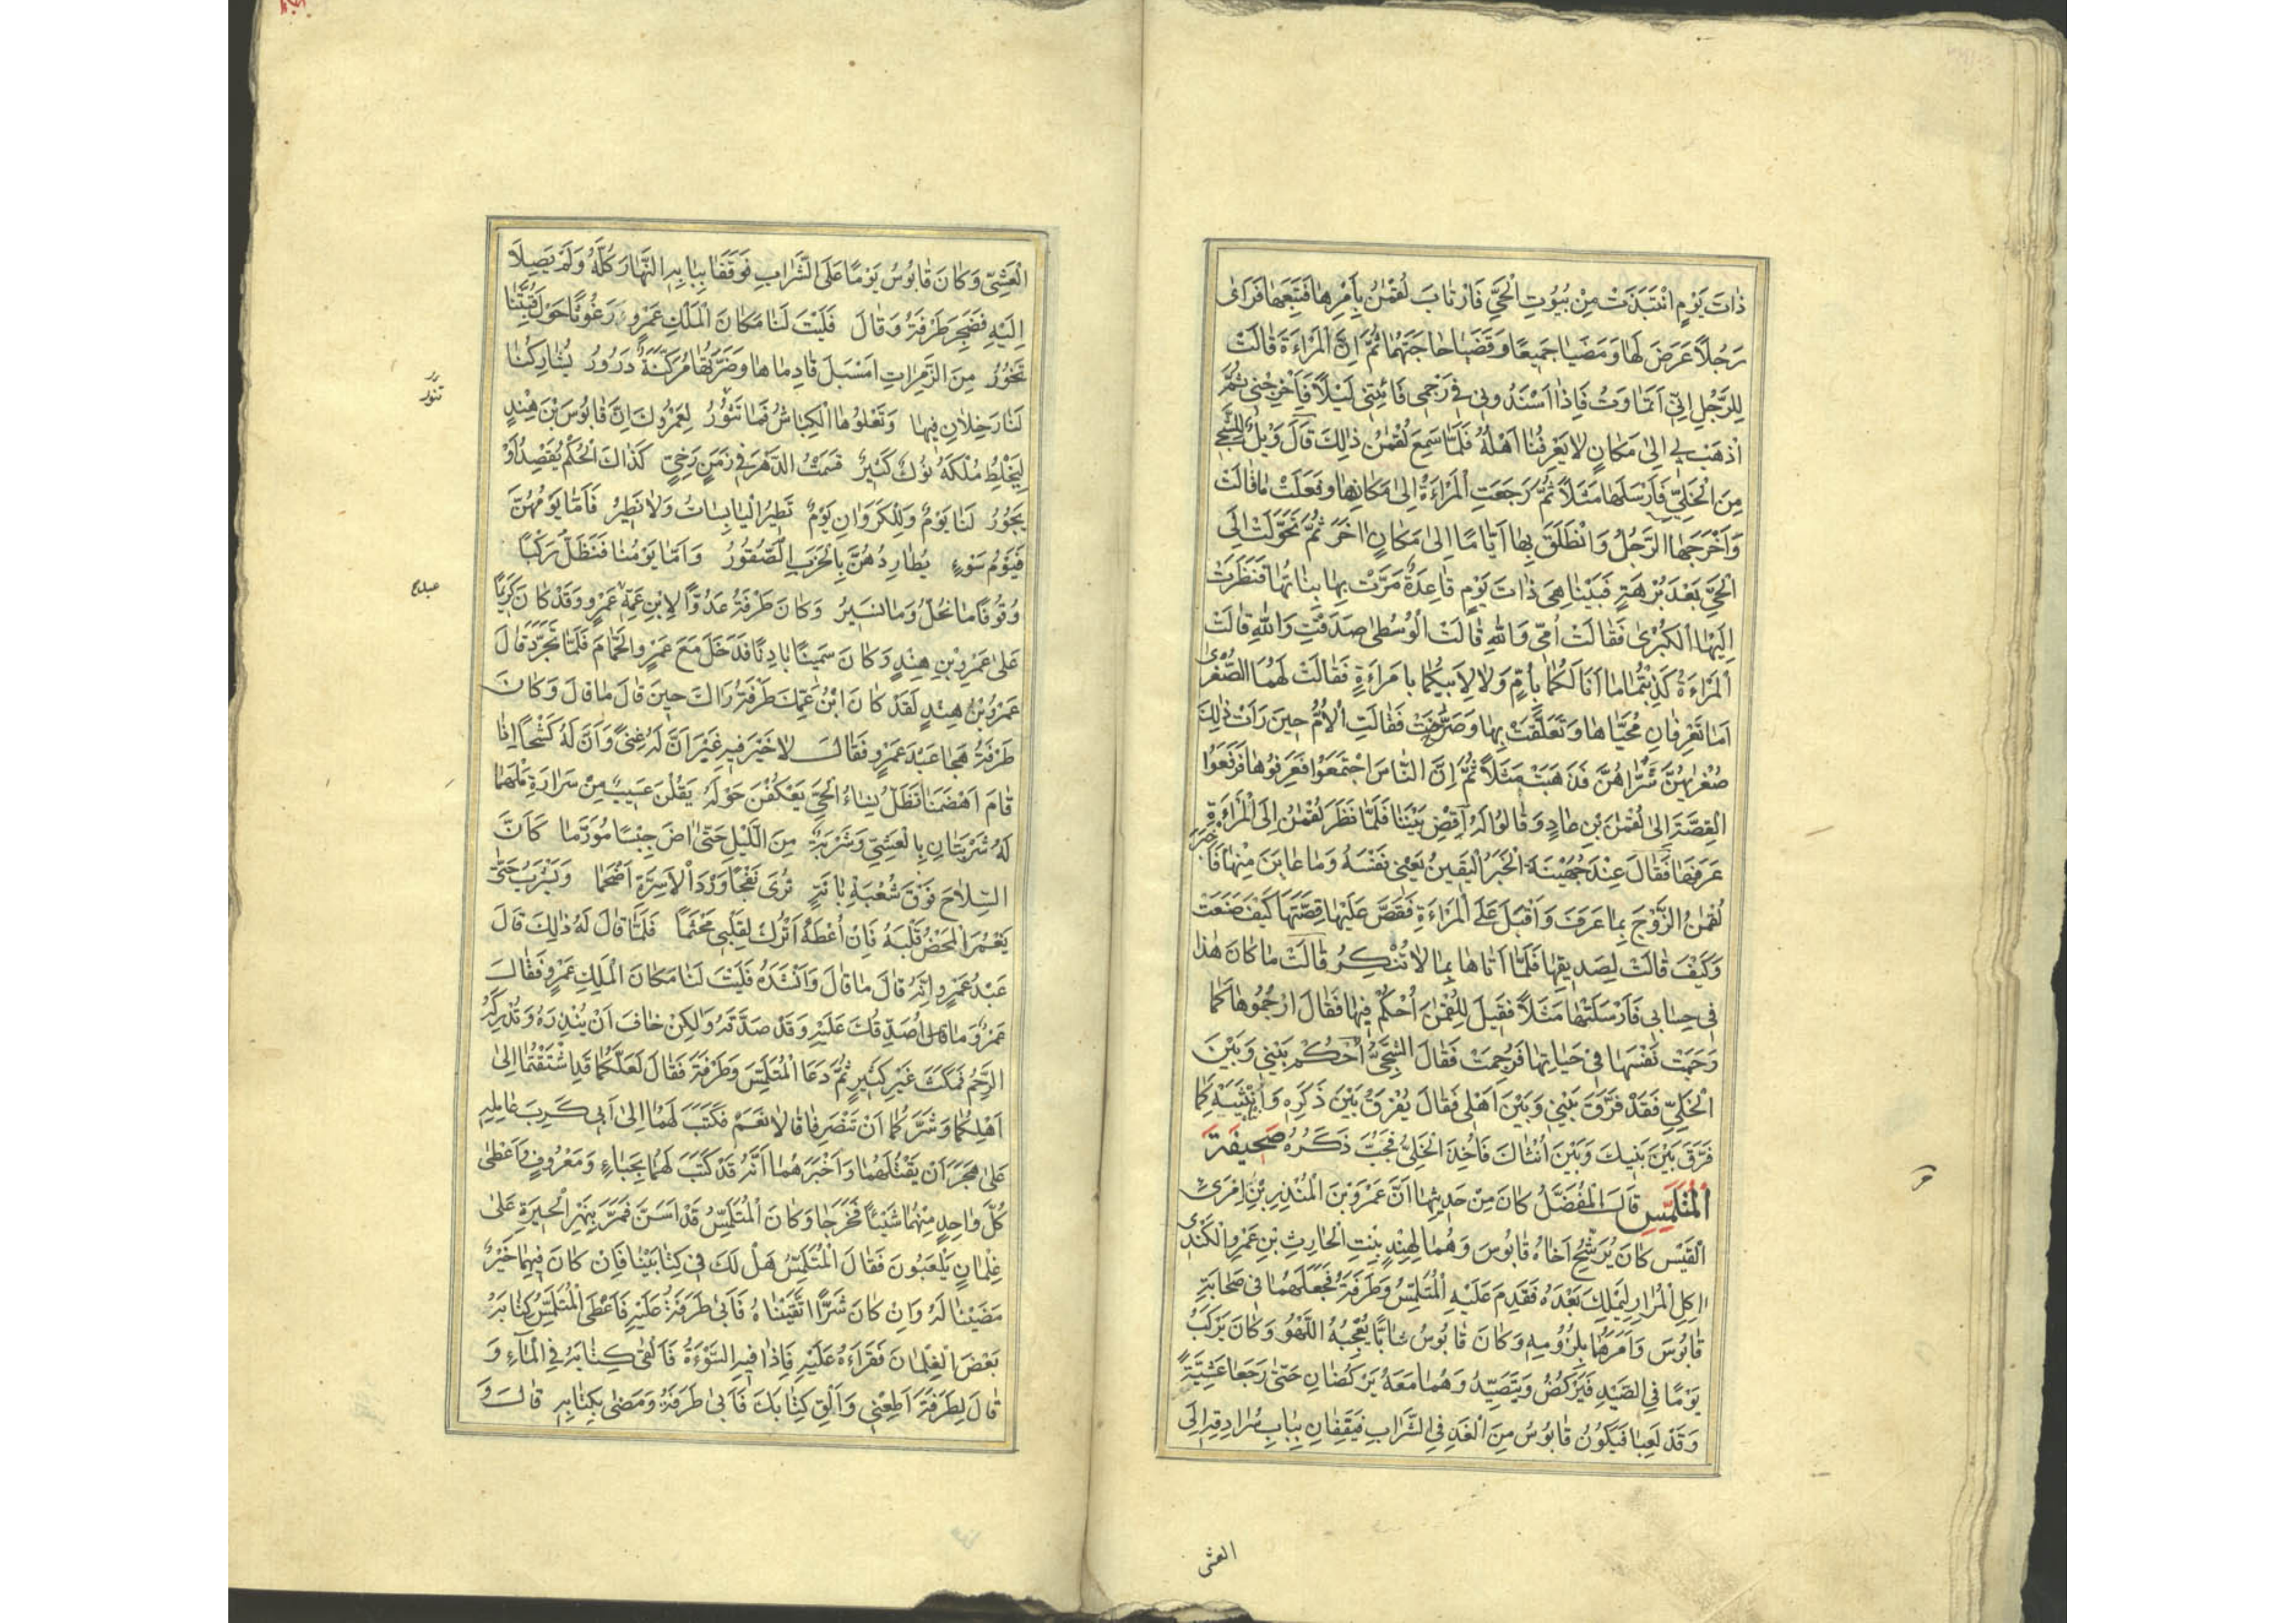 ذَاتَ يَوْمٍ انْتَبَذَتْ مِنْ بُيُوتِ الْحَيِّ فَارْتَابَ لُقْمٰنُ بِأَمْرِهَا فَتَبِعَهَا فَرَاىٰ
رَجُلًا عَرَضَ لَهَا وَمَضَيَا جَمِيعًا وَقَضَيَا حَاجَتَهُمَا ثُمَّ اِنَّ الْمَرْاَةَ قَالَتْ
لِلرَّجُلِ اِنِّي اَتَمَاوَتُ فَاِذَا اَسْنَدُونِي فِي رَجَمِي فَائْتِنِي لَيْلًا فَاَخْرِجْنِي ثُمَّ
اذْهَبْ بِي اِلىٰ مَكَانٍ لَا يَعْرِفُنَا اَهْلُهُ فَلَمَّا سَمِعَ لُقْمٰنُ ذٰلِكَ قَالَ وَيْلٌ لِلشَّجِي
مِنَ الْخَلِيِّ فَاَرْسَلَهَا مَثَلًا ثُمَّ رَجَعَتِ الْمَرْاَةُ اِلىٰ مَكَانِهَا وَفَعَلَتْ مَا قَالَتْ
وَاَخْرَجَهَا الرَّجُلُ وَانْطَلَقَ بِهَا اَيَّامًا اِلىٰ مَكَانٍ اٰخَرَ ثُمَّ تَحَوَّلَتْ اِلَى
الْحَيِّ بَعْدَ بُرْهَةٍ فَبَيْنَا هِيَ ذَاتَ يَوْمٍ قَاعِدَةٌ مَرَّتْ بِهَا بَنَاتُهَا فَنَظَرَتْ
اِلَيْهَا الْكُبْرىٰ فَقَالَتْ اُمِّي وَاللهِ قَالَتْ الْوُسْطىٰ صَدَقْتِ وَاللهِ قَالَتْ
الْمَرْاَةُ كَذِبْتُمَا مَا اَنَا لَكُمَا بِاُمٍّ وَلَا لِاَبِيكُمَا بِامْرَاَةٍ فَقَالَتْ لَهُمَا الصُّغْرىٰ
اَمَا تَعْرِفَانِ مُحَيَّاهَا وَتَعَلَّقَتْ بِهَا وَصَرَخَتْ فَقَالَتِ الْاُمُّ حِينَ رَاَتْ ذٰلِكَ
صُغْرٰيهُنَّ شَرَّاهُنَّ فَذَهَبَتْ مَثَلًا ثُمَّ اِنَّ النَّاسَ اجْتَمَعُوا فَعَرَفُوهَا فَرَفَعُوا
الْقِصَّةَ اِلىٰ لُقْمٰنَ بْنِ عَادٍ وَقَالُوا لَهُ اقْضِ بَيْنَنَا فَلَمَّا نَظَرَ لُقْمٰنُ اِلَى الْمَرْاَةِ
عَرَفَهَا فَقَالَ عِنْدَ جُهَيْنَةَ الْخَبَرُ الْيَقِينُ يَعْنِي نَفْسَهُ وَمَا عَايَنَ مِنْهَا فَاَخْبَرَ
لُقْمٰنُ الزَّوْجَ بِمَا عَرَفَ وَاَقْبَلَ عَلَى الْمَرْاَةِ فَقَصَّ عَلَيْهَا قِصَّتَهَا كَيْفَ صَنَعَتْ
وَكَيْفَ قَالَتْ لِصَدِيقِهَا فَلَمَّا اَتَاهَا بِمَا لَا تُنْكِرُ قَالَتْ مَا كَانَ هٰذَا
فِي حِسَابِي فَاَرْسَلَتْهَا مَثَلًا فَقِيلَ لِلُقْمٰنَ اُحْكُمْ فِيهَا فَقَالَ ارْجُمُوهَا كَمَا
رَجَمَتْ نَفْسَهَا فِي حَيَاتِهَا فَرُجِمَتْ فَقَالَ الشَّجِيُّ اُحْكُمْ بَيْنِي وَبَيْنَ
الْخَلِيِّ فَقَدْ فَرَّقَ بَيْنِي وَبَيْنَ اَهْلِي فَقَالَ يُفَرَّقُ بَيْنَ ذَكَرِهِ وَاُنْثَيَيْهِ كَمَا
فَرَّقَ بَيْنَكَ وَبَيْنَ اُنْثَاكَ فَاُخِذَ الْخَلِيُّ فَجُبَّ ذَكَرُهُ صَحِيفَةُ
الْمُتَلَمِّسِ قَالَ الْمُفَضَّلُ كَانَ مِنْ حَدِيثِهَا اَنَّ عَمْرَو بْنَ الْمُنْذِرِ بْنِ امْرِئِ
الْقَيْسِ كَانَ يُرَشِّحُ اَخَاهُ قَابُوسَ وَهُمَا لِهِنْدٍ بِنْتِ الْحَارِثِ بْنِ عَمْرٍو الْكِنْدِي
اٰكِلِ الْمُرَارِ لِيَمْلِكَ بَعْدَهُ فَقَدِمَ عَلَيْهِ الْمُتَلَمِّسُ وَطَرَفَةُ فَجَعَلَهُمَا فِي صَحَابَةِ
قَابُوسَ وَاَمَرَهُمَا بِلُزُومِهِ وَكَانَ قَابُوسُ شَابًّا يُعْجِبُهُ اللَّهْوُ وَكَانَ يَرْكَبُ
يَوْمًا فِي الصَّيْدِ فَيَرْكُضُ وَيَتَصَيَّدُ وَهُمَا مَعَهُ يَرْكُضَانِ حَتّٰى رَجَعَا عَشِيَّةً
وَقَدْ لَغِبَا فَيَكُونُ قَابُوسُ مِنَ الْغَدِ فِي الشَّرَابِ فَيَقِفَانِ بِبَابِ سُرَادِقِهِ اِلَى
العشى
الْعَشِيِّ وَكَانَ قَابُوسُ يَوْمًا عَلَى الشَّرَابِ فَوَقَفَا بِبَابِهِ النَّهَارَ كُلَّهُ وَلَمْ يَصِلَا
اِلَيْهِ فَضَجِرَ طَرَفَةُ وَقَالَ فَلَيْتَ لَنَا مَكَانَ الْمَلْكِ عَمْرٍو رَغُوثًا حَوْلَ قُبَّتِنَا
تَخُورُ مِنَ الزَّمِرَاتِ اَسْبَلَ قَادِمَاهَا وَضَرَّتُهَا مُرَكَّنَةٌ دَرُورُ يُشَارِكُنَا
لَنَا رَخِلَانِ فِيهَا وَتَعْلُوهَا الْكِبَاشُ فَمَا تَنُورُ لَعَمْرُكَ اِنَّ قَابُوسَ بْنَ هِنْدٍ
لَيَخْلِطُ مُلْكَهُ نُوكٌ كَثِيرٌ قَسَمْتَ الدَّهْرَ فِي زَمَنٍ رَخِيٍّ كَذَاكَ الْحُكْمُ يَقْصِدُ اَوْ
يَجُورُ لَنَا يَوْمٌ وَلِلْكَرَوَانِ يَوْمٌ تَطِيرُ الْيَابِسَاتُ وَلَا نَطِيرُ فَاَمَّا يَوْمُهُنَّ
فَيَوْمُ سَوْءٍ يُطَارِدُهُنَّ بِالْحَدَبِ الصُّقُورُ وَاَمَّا يَوْمُنَا فَنَظَلُّ رَكْبًا
وُقُوفًا مَا نَحُلُّ وَمَا نَسِيرُ وَكَانَ طَرَفَةُ عَدُوًّا لِابْنِ عَمِّهِ عَمْرٍو وَقَدْ كَانَ كَرِيمًا
عَلىٰ عَمْرِو بْنِ هِنْدٍ وَكَانَ سَمِينًا بَادِنًا فَدَخَلَ مَعَ عَمْرٍو الْحَمَّامَ فَلَمَّا تَجَرَّدَ قَالَ
عَمْرُو بْنُ هِنْدٍ لَقَدْ كَانَ ابْنُ عَمِّكَ طَرَفَةُ رَاٰكَ حِينَ قَالَ مَا قَالَ وَكَانَ
طَرَفَةُ هَجَا عَبْدَ عَمْرٍو فَقَالَ لَا خَيْرَ فِيهِ غَيْرَ اَنَّ لَهُ غِنًى وَاَنَّ لَهُ كَشْحًا اِذَا
قَامَ اَهْضَمَا تَظَلُّ نِسَاءُ الْحَيِّ يَعْكُفْنَ حَوْلَهُ يَقُلْنَ عَسِيبٌ مِنْ سَرَارَةِ مَلْهَمَا
لَهُ شَرْبَتَانِ بِالْعَشِيِّ وَشَرْبَةٌ مِنَ اللَّيْلِ حَتّٰى اٰضَ جِبْسًا مُوَرَّمَا كَاَنَّ
السِّلَاحَ فَوْقَ شُعْبَةِ بَانَةٍ تُرىٰ نَفْخًا وَرْدَ الْاَسِرَّةِ اَصْحَمَا وَيَشْرَبُ حَتّٰى
يَغْمُرَ الْمَحْضُ قَلْبَهُ فَاِنْ اُعْطَهُ اَتْرُكْ لِقَلْبِي مَجْثَمًا فَلَمَّا قَالَ لَهُ ذٰلِكَ قَالَ
عَبْدُ عَمْرٍو اِنَّهُ قَالَ مَا قَالَ وَاَنْشَدَهُ فَلَيْتَ لَنَا مَكَانَ الْمَلِكِ عَمْرٍو فَقَالَ
عَمْرٌو مَا اُصَدِّقُكَ عَلَيْهِ وَقَدْ صَدَّقَهُ وَلٰكِنْ خَافَ اَنْ يُنْذِرَهُ وَتُدْرِكَهُ
الرَّحِمُ فَمَكَثَ غَيْرَ كَثِيرٍ ثُمَّ دَعَا الْمُتَلَمِّسَ وَطَرَفَةَ فَقَالَ لَعَلَّكُمَا قَدِ اشْتَقْتُمَا اِلىٰ
اَهْلِكُمَا وَسَرَّكُمَا اَنْ تَنْصَرِفَا قَالَا نَعَمْ فَكَتَبَ لَهُمَا اِلىٰ اَبِي كَرِبَ عَامِلِهِ
عَلىٰ هَجَرَ اَنْ يَقْتُلَهُمَا وَاَخْبَرَهُمَا اَنَّهُ قَدْ كَتَبَ لَهُمَا بِحِبَاءٍ وَمَعْرُوفٍ وَاَعْطىٰ
كُلَّ وَاحِدٍ مِنْهُمَا شَيْئًا فَخَرَجَا وَكَانَ الْمُتَلَمِّسُ قَدْ اَسَنَّ فَمَرَّ بِنَهْرِ الْحِيرَةِ عَلىٰ
غِلْمَانٍ يَلْعَبُونَ فَقَالَ الْمُتَلَمِّسُ هَلْ لَكَ فِي كِتَابَيْنَا فَاِنْ كَانَ فِيهِمَا خَيْرٌ
مَضَيْنَا لَهُ وَاِنْ كَانَ شَرًّا اتَّقَيْنَاهُ فَاَبىٰ طَرَفَةُ عَلَيْهِ فَاَعْطَى الْمُتَلَمِّسُ كِتَابَهُ
بَعْضَ الْغِلْمَانِ فَقَرَاَهُ عَلَيْهِ فَاِذَا فِيهِ السَّوْءَةُ فَاَلْقىٰ كِتَابَهُ فِي الْمَاءِ وَ
قَالَ لِطَرَفَةَ اَطِعْنِي وَاَلْقِ كِتَابَكَ فَاَبىٰ طَرَفَةُ وَمَضىٰ بِكِتَابِهِ قَالَ وَ
تنور